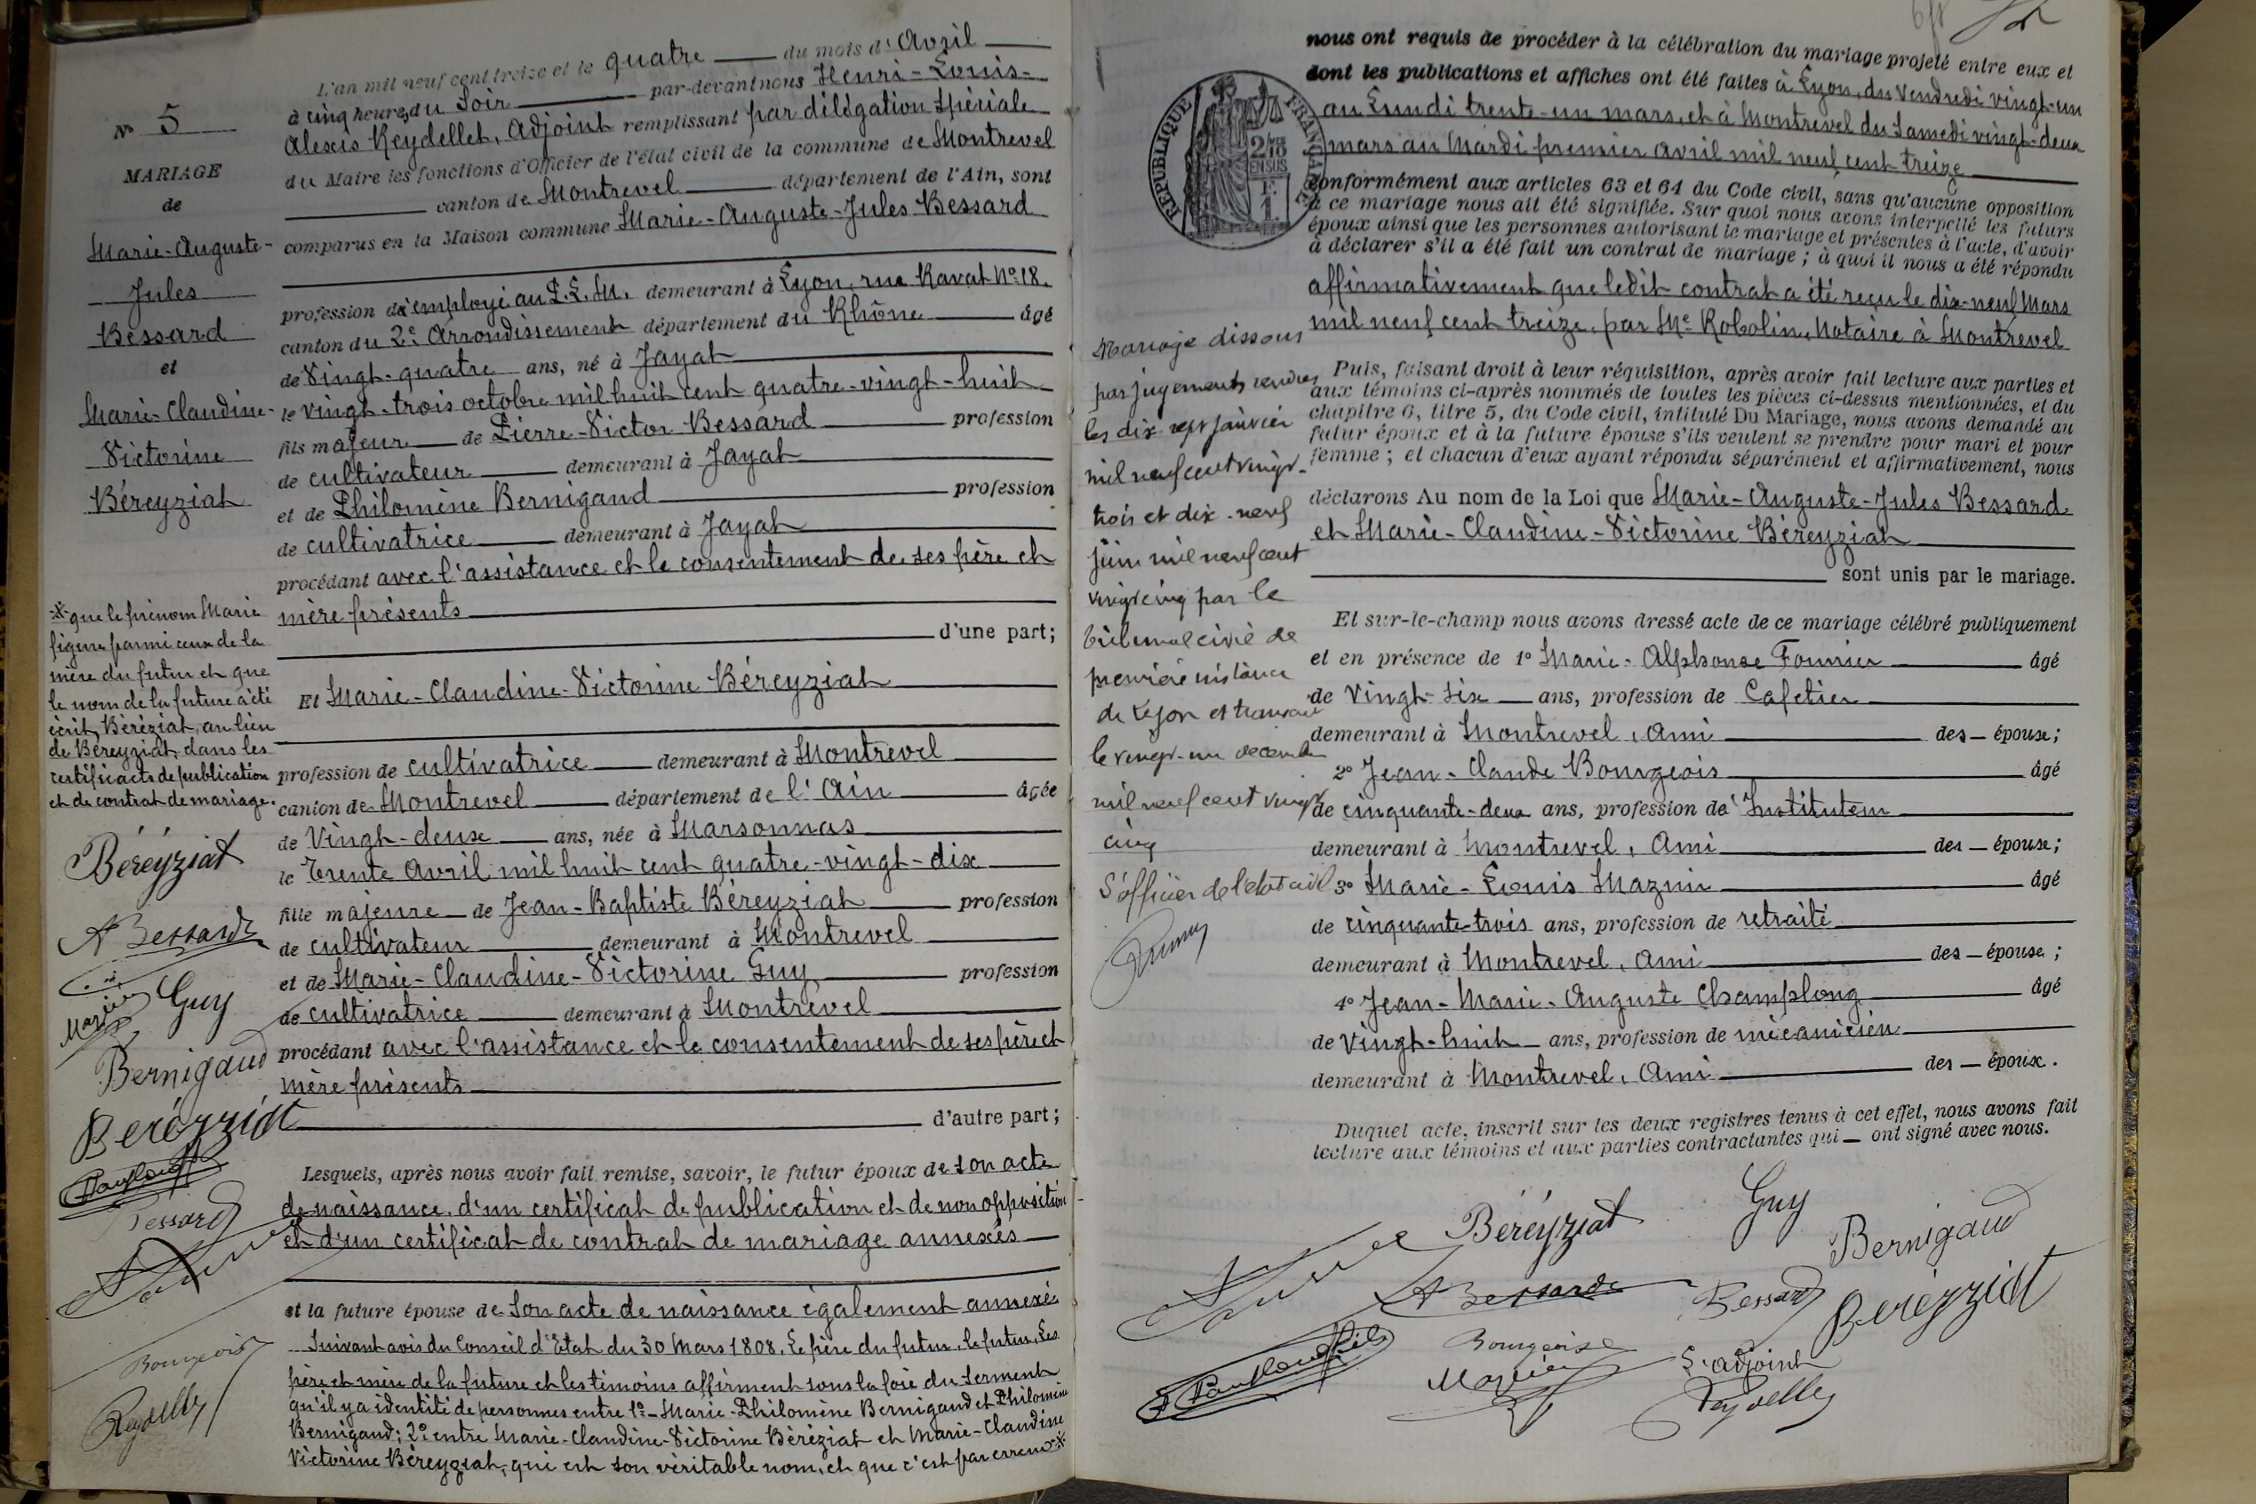 N° 5
MARIAGE
de
Marie-Auguste-
Jules
Bessard
et
Marie-Claudine-
Victorine
Béreyziat
L'an mil neuf cent treize et le quatre du mois d'Avril
à cinq heures du Soir par-devant nous Henri-Louis-
Alexis Reydellet, Adjoint remplissant par délégation spéciale
du Maire les fonctions d'Officier de l'état civil de la commune de Montrevel
canton de Montrevel département de l'Ain, sont
comparus en la Maison commune Marie-Auguste-Jules Bessard
profession d'employé au P.L.M. demeurant à Lyon, rue Ravat N° 18.
canton du 2e Arrondissement département du Rhône âgé
de Vingt-quatre ans, né à Jayat
le vingt-trois octobre mil huit cent quatre-vingt-huit
fils majeur de Pierre-Victor Bessard profession
de cultivateur demeurant à Jayat
et de Philomène Bernigaud profession
de cultivatrice demeurant à Jayat
procédant avec l'assistance et le consentement de ses père et
mère présents
d'une part;
Et Marie-Claudine-Victorine Béreyziat
profession de cultivatrice demeurant à Montrevel
canton de Montrevel département de l'Ain âgée
de Vingt-deux ans, née à Marsonnas
le Trente Avril mil huit cent quatre-vingt-dix
fille majeure de Jean-Baptiste Béreyziat profession
de cultivateur demeurant à Montrevel
et de Marie-Claudine-Victorine Guy profession
de cultivatrice demeurant à Montrevel
procédant avec l'assistance et le consentement de ses père et
mère présents
d'autre part;
Lesquels, après nous avoir fait remise, savoir, le futur époux de son acte
de naissance, d'un certificat de publication et de non opposition
et d'un certificat de contrat de mariage annexés
et la future épouse de Son acte de naissance également annexé.
Suivant avis du Conseil d'Etat du 30 Mars 1808, Le père du futur, le futur, Les
père et mère de la future et les témoins affirment sous la foie du serment
qu'il y a identité de personnes entre 1° Marie-Philomène Bernigaud et Philomène
Bernigaud; 2° entre Marie-Claudine-Victorine Béréziat et Marie-Claudine
Victorine Béreyziat, qui est son véritable nom, et que c'est par erreur *
* que le prénom Marie
figure parmi ceux de la
mère du futur et que
le nom de la future a été
écrit Béréziat, au lieu
de Béreyziat, dans les
certificats de publication
et de contrat de mariage.
Béréyziat
A Bessard
Mazuir
Guy
Bernigaud
Beréyziat
Bessard
Bourgeois
Reydellet
nous ont requis de procéder à la célébration du mariage projeté entre eux et
dont les publications et affiches ont été faites à Lyon, du Vendredi vingt-un
au Lundi trente-un mars, et à Montrevel du Samedi vingt-deux
mars au Mardi premier avril mil neuf cent treize
REPUBLIQUE FRANÇAISE
2/10
EN SUS
F.
1.
conformément aux articles 63 et 64 du Code civil, sans qu'aucune opposition
à ce mariage nous ait été signifiée. Sur quoi nous avons interpellé les futurs
époux ainsi que les personnes autorisant le mariage et présentes à l'acte, d'avoir
à déclarer s'il a été fait un contrat de mariage; à quoi il nous a été répondu
affirmativement que ledit contrat a été reçu le dix-neuf Mars
mil neuf cent treize, par Me Robolin, Notaire à Montrevel
Puis, faisant droit à leur réquisition, après avoir fait lecture aux parties et
aux témoins ci-après nommés de toutes les pièces ci-dessus mentionnées, et du
chapitre 6, titre 5, du Code civil, intitulé Du Mariage, nous avons demandé au
futur époux et à la future épouse s'ils veulent se prendre pour mari et pour
femme; et chacun d'eux ayant répondu séparément et affirmativement, nous
déclarons Au nom de la Loi que Marie-Auguste-Jules Bessard
et Marie-Claudine-Victorine Béreyziat
sont unis par le mariage.
Et sur-le-champ nous avons dressé acte de ce mariage célébré publiquement
et en présence de 1° Marie-Alphonse Fournier âgé
de Vingt-six ans, profession de Cafetier
demeurant à Montrevel, Ami des époux;
2° Jean-Claude Bourgeois âgé
de cinquante-deux ans, profession d'Instituteur
demeurant à Montrevel, Ami des époux;
3° Marie-Louis Mazuir âgé
de cinquante-trois ans, profession de retraité
demeurant à Montrevel, Ami des époux;
4° Jean-Marie-Auguste Champlong âgé
de Vingt-huit ans, profession de mécanicien
demeurant à Montrevel, Ami des époux.
Duquel acte, inscrit sur les deux registres tenus à cet effet, nous avons fait
lecture aux témoins et aux parties contractantes qui ont signé avec nous.
Mariage dissous
par jugements rendus
les dix sept janvier
mil neuf cent vingt-
trois et dix-neuf
juin mil neuf cent
vingt cinq par le
tribunal civil de
première instance
de Lyon et transcrit
le vingt-un décembre
mil neuf cent vingt
cinq
L'officier de l'état civil
Béréyziat
Guy
Bernigaud
A Bessard
Bessard
Beréyziat
Bourgeois
Mazuir
L'adjoint
Reydellet